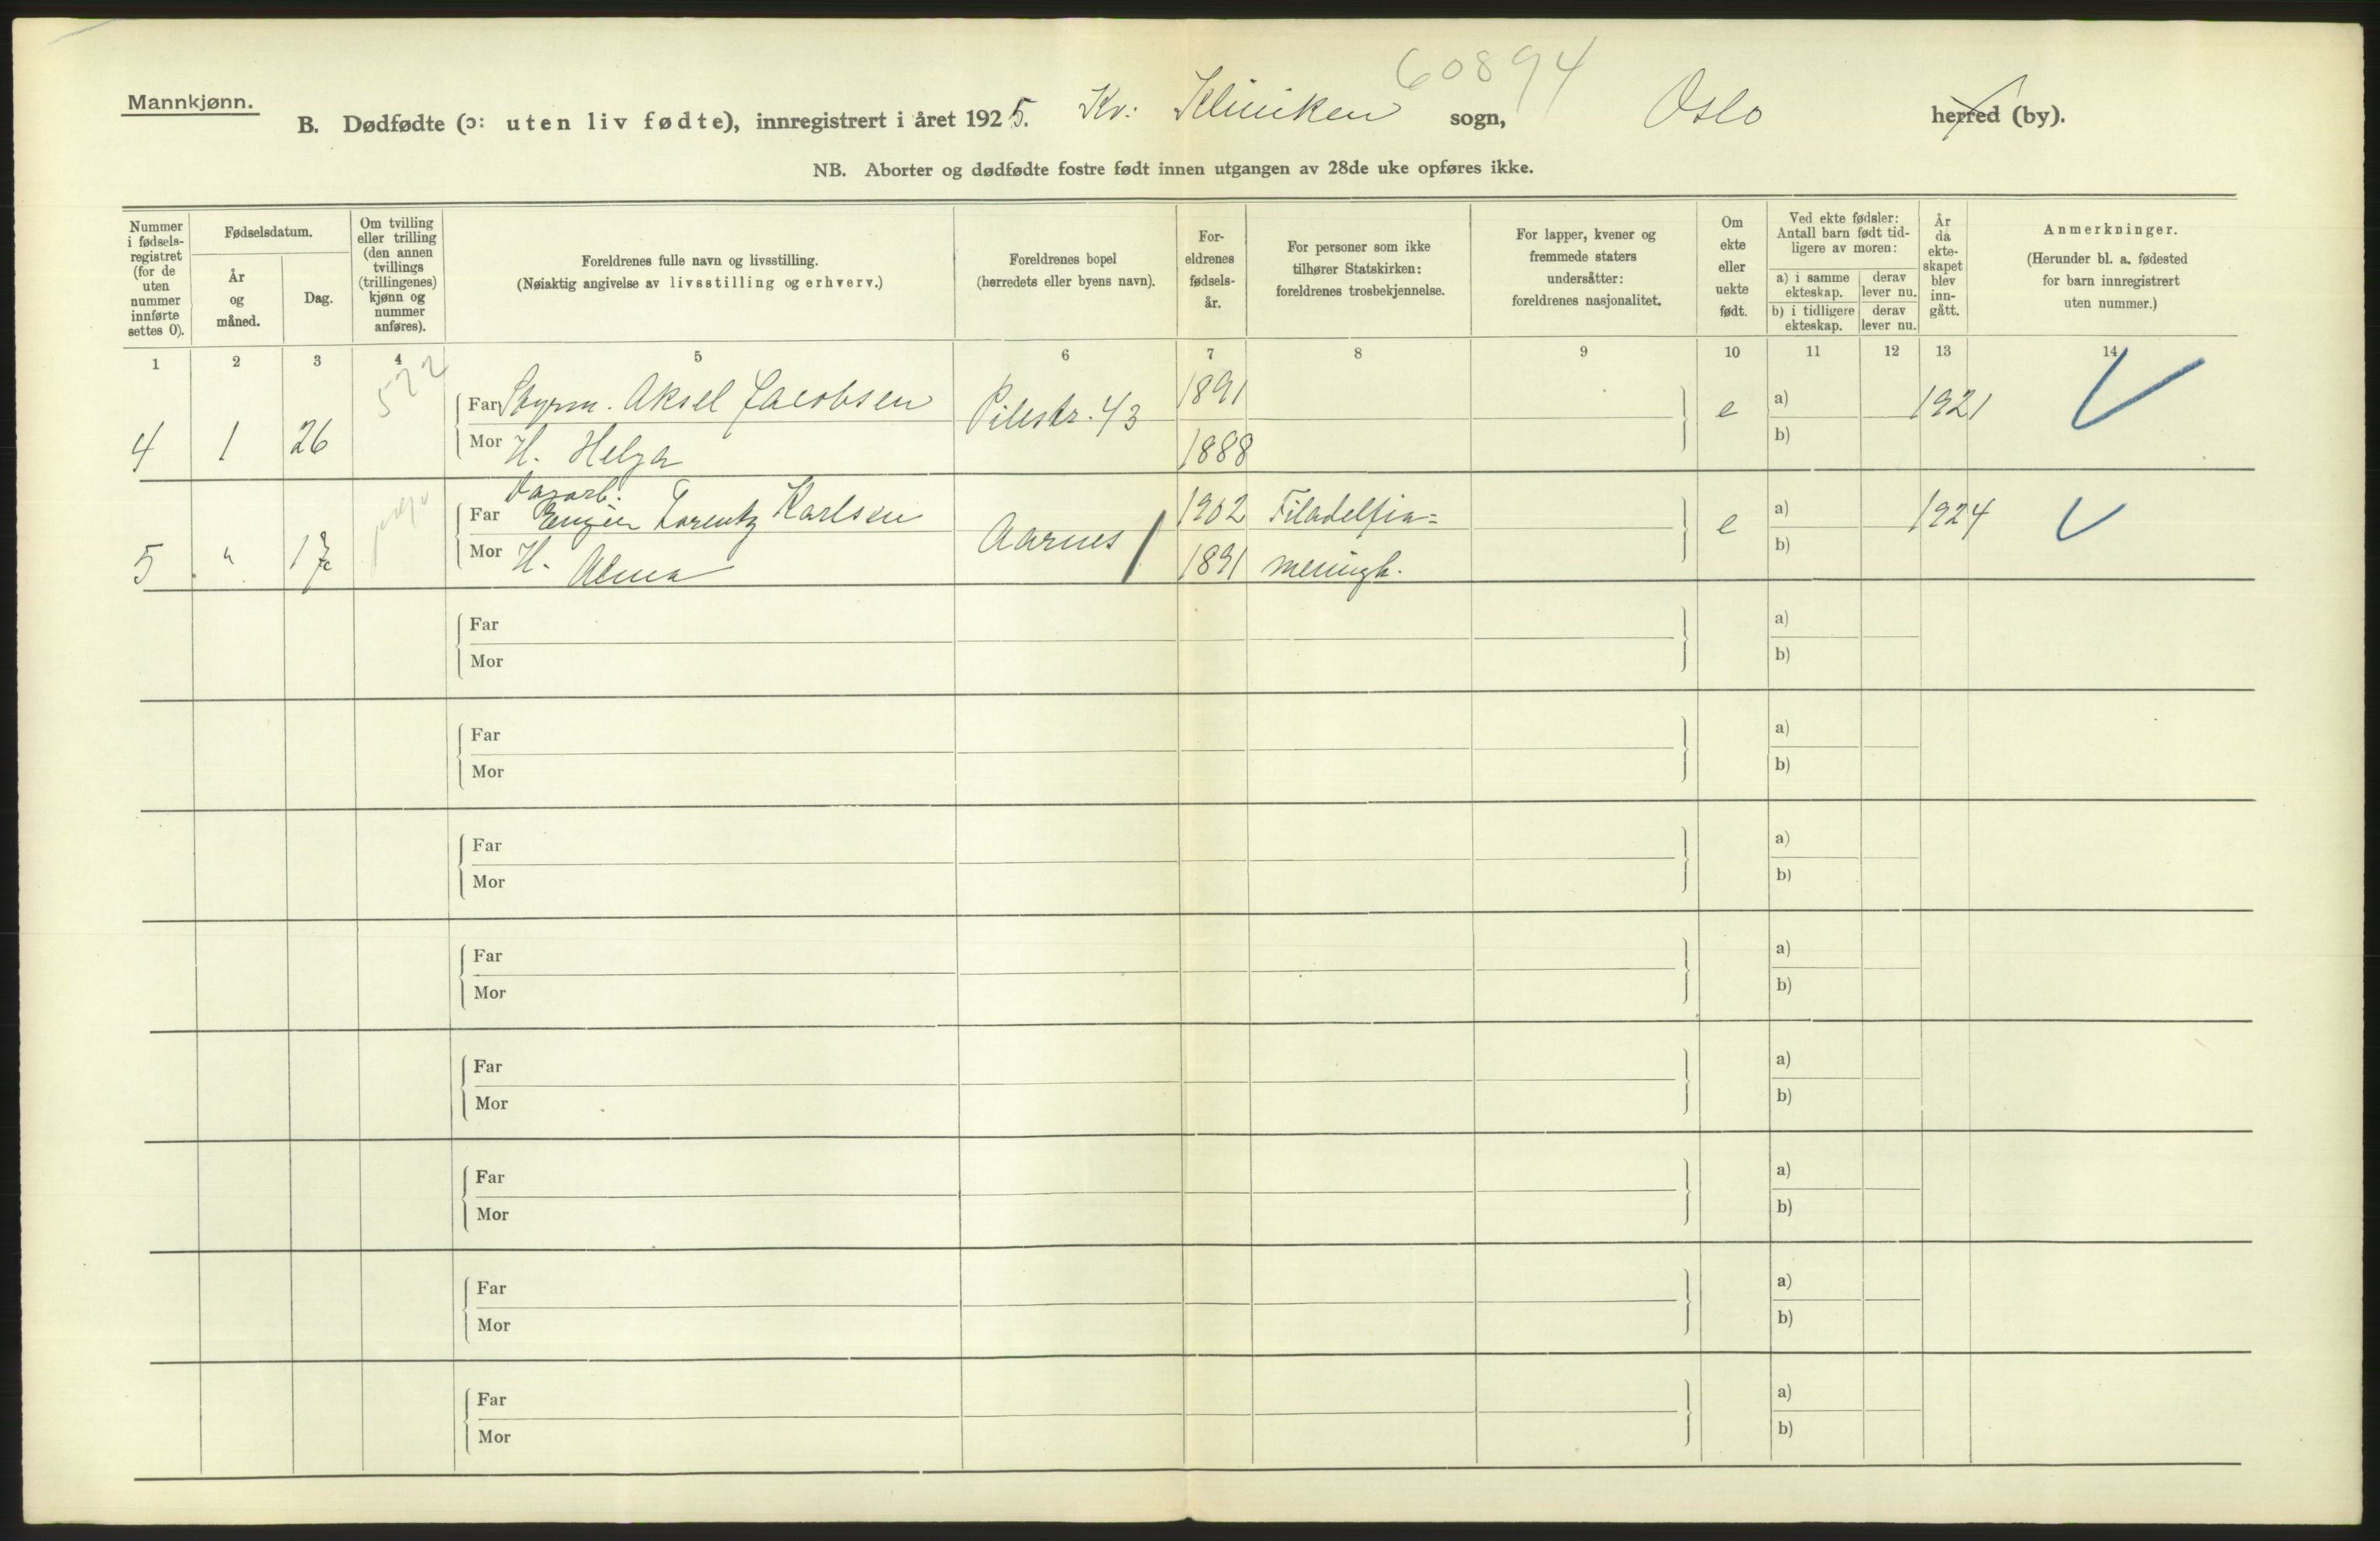 60894
Mannkjønn.
B. Dødfødte (ɔ: uten liv fødte), innregistrert i året 1925. Kv: Kliniken sogn, Oslo herred (by).
NB. Aborter og dødfødte fostre født innen utgangen av 28de uke opføres ikke.
Nummer i fødsels- registret (for de uten nummer innførte settes 0).
Fødselsdatum.
År og måned.
Dag.
Om tvilling eller trilling (den annen tvillings (trillingenes) kjønn og nummer anføres).
Foreldrenes fulle navn og livsstilling.
(Nøiaktig angivelse av livsstilling og erhverv.)
Foreldrenes bopel
(herredets eller byens navn).
For- eldrenes fødsels- år.
For personer som ikke tilhører Statskirken: foreldrenes trosbekjennelse.
For lapper, kvener og fremmede staters undersåtter: foreldrenes nasjonalitet.
Om ekte eller uekte født.
Ved ekte fødsler: Antall barn født tid- ligere av moren:
a) i samme ekteskap.
derav lever nu.
b) i tidligere ekteskap.
derav lever nu.
År da ekte- skapet blev inn- gått.
Anmerkninger.
(Herunder bl. a. fødested for barn innregistrert uten nummer.)
1 2 3 4 5 6 7 8 9 10 11 12 13 14
522
4 1 26 Far Styrm. Aksel Jacobsen Pilestr. 43 1891 e a) 1921
Mor H. Helga 1888 b)
5 " 17 Far Eugen Lorentz Karlsen Aarnes 1902 Filadelfia= e a) 1924
Mor H. Alma 1891 menigh. b)
Far a)
Mor b)
Far a)
Mor b)
Far a)
Mor b)
Far a)
Mor b)
Far a)
Mor b)
Far a)
Mor b)
Far a)
Mor b)
Far a)
Mor b)